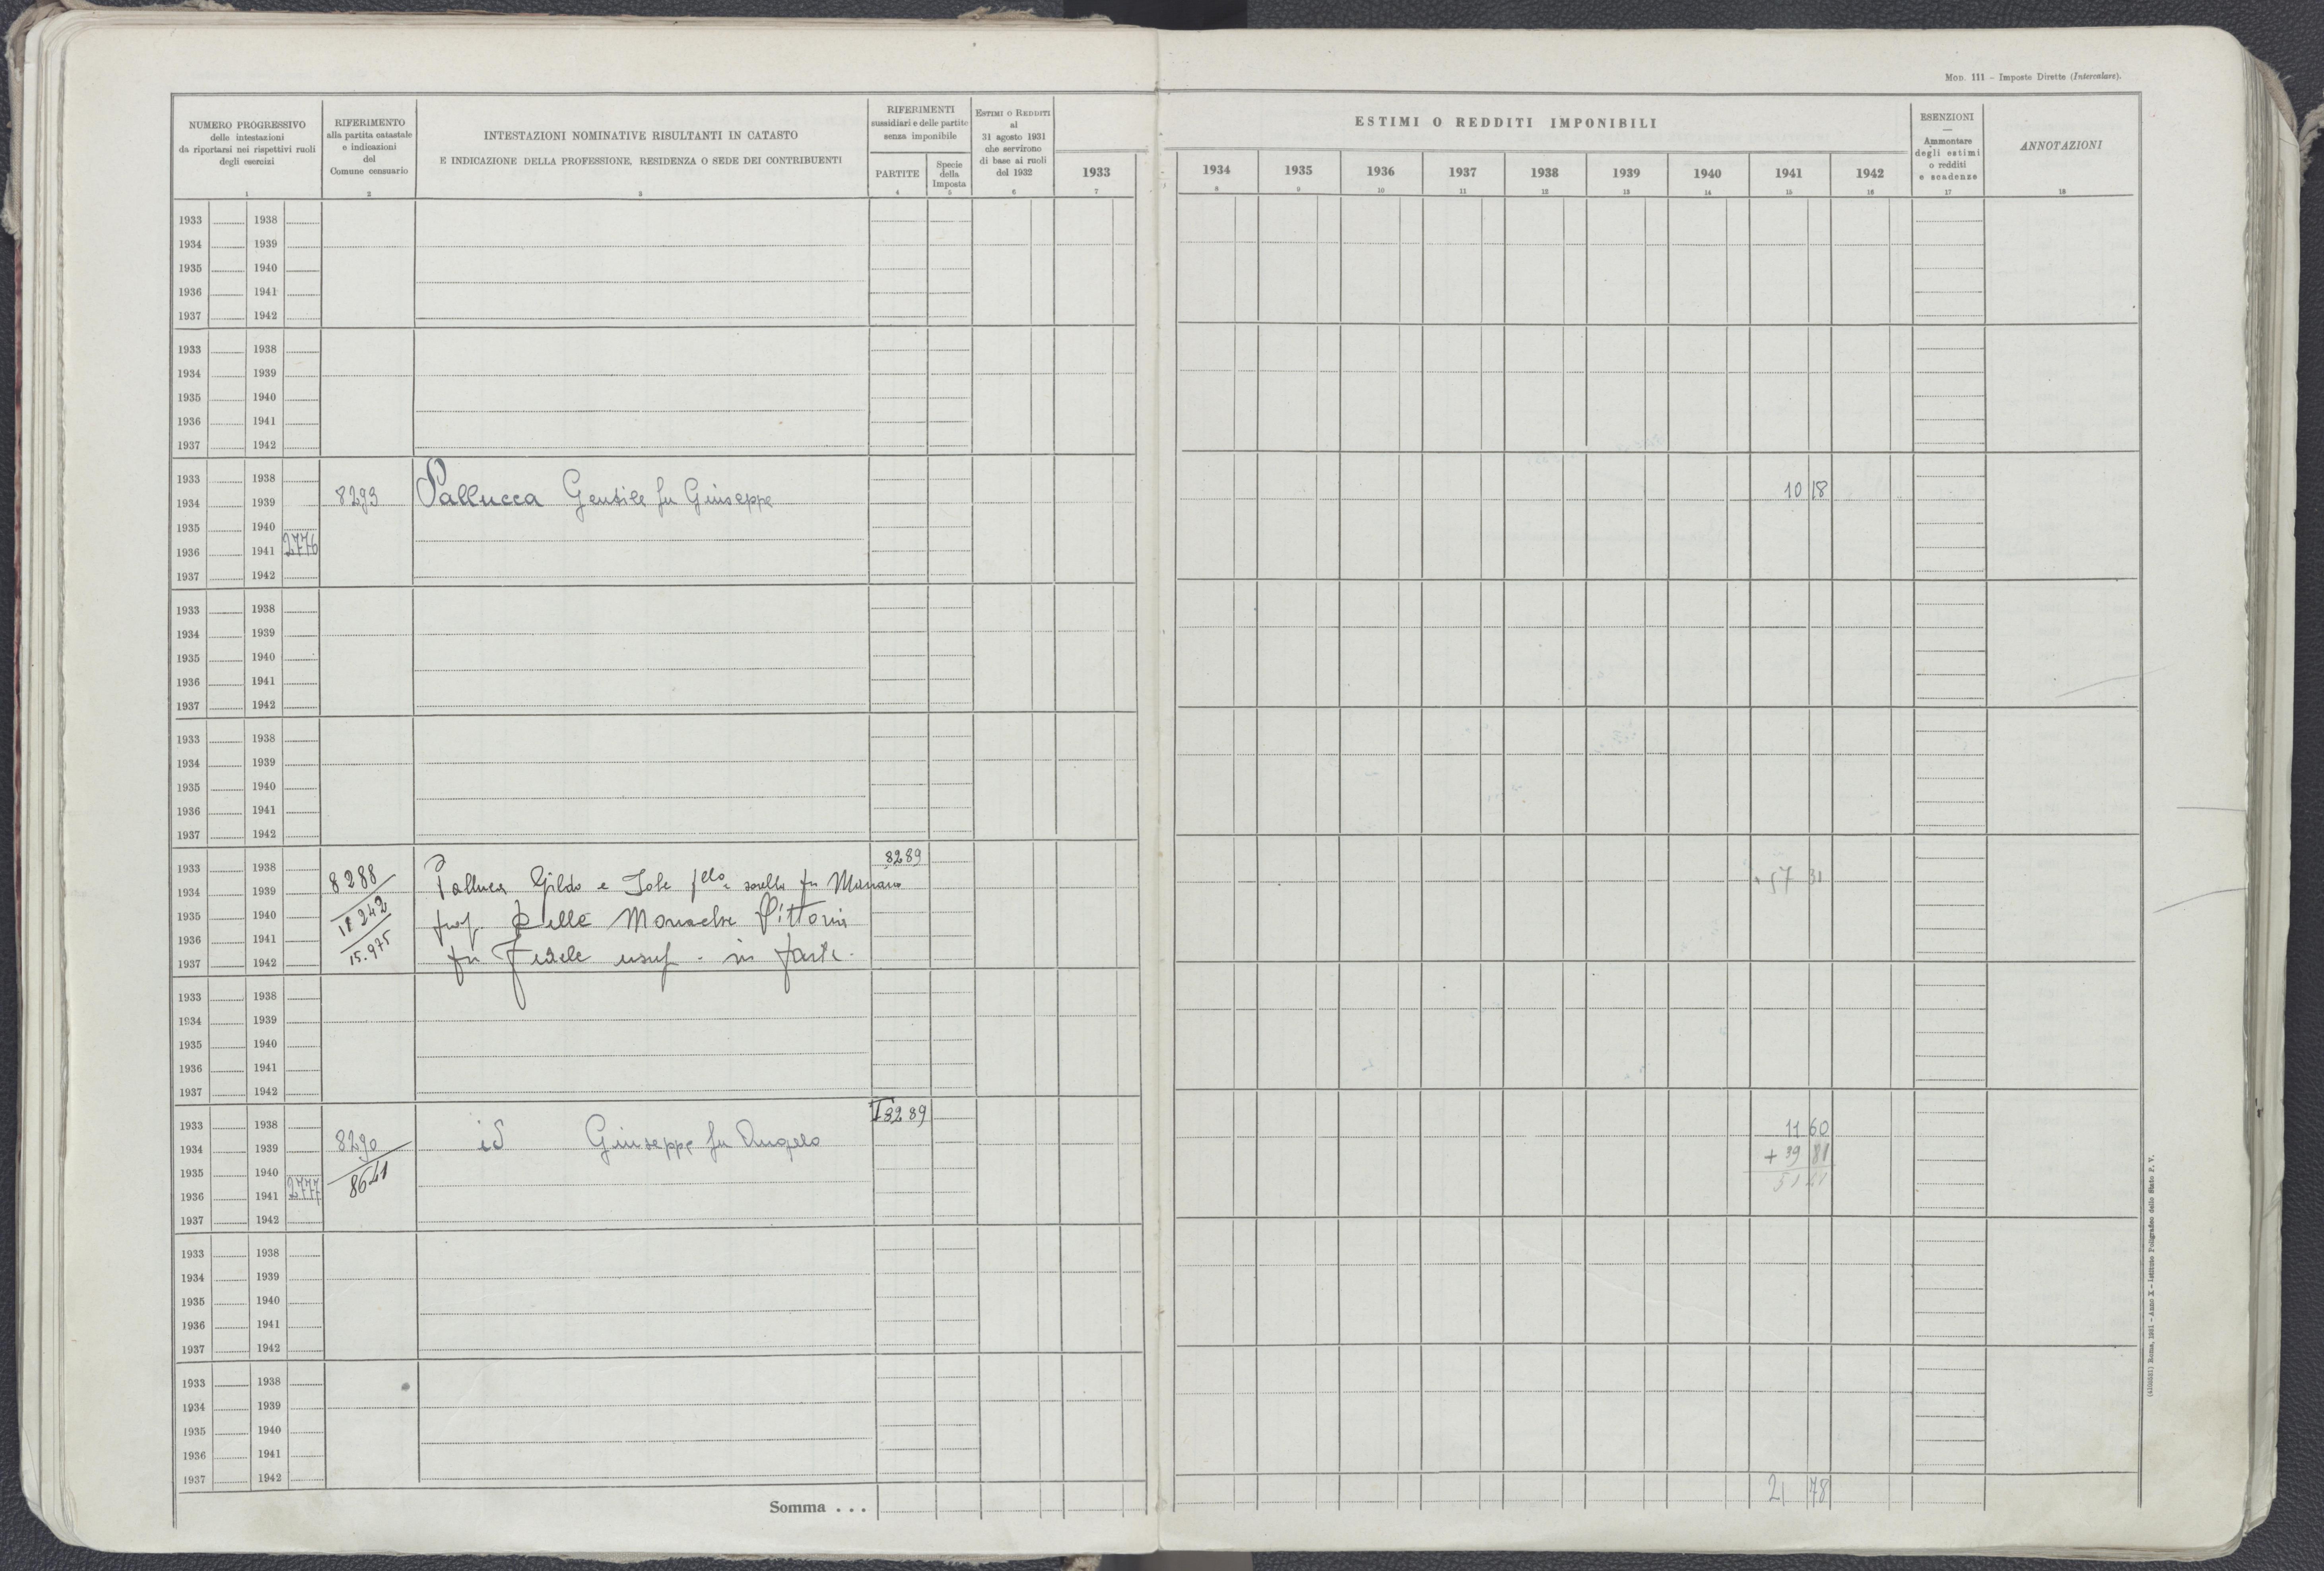 Mod. 111 – Imposte Dirette (Intercalare).
NUMERO PROGRESSIVO
delle intestazioni
da riportarsi nei rispettivi ruoli
degli esercizi
1
RIFERIMENTO
alla partita catastale
e indicazioni
del
Comune censuario
2
INTESTAZIONI NOMINATIVE RISULTANTI IN CATASTO
E INDICAZIONE DELLA PROFESSIONE, RESIDENZA O SEDE DEI CONTRIBUENTI
3
RIFERIMENTI
sussidiari e delle partite
senza imponibile
PARTITE
4
Specie
della
Imposta
5
ESTIMI O REDDITI
al
31 agosto 1931
che servirono
di base ai ruoli
del 1932
6
1933
7
ESTIMI O REDDITI IMPONIBILI
1934 1935 1936 1937 1938 1939 1940 1941 1942
8 9 10 11 12 13 14 15 16
ESENZIONI
—
Ammontare
degli estimi
o redditi
e scadenze
17
ANNOTAZIONI
18
1933 1938
1934 1939
1935 1940
1936 1941
1937 1942
1933 1938
1934 1939
1935 1940
1936 1941
1937 1942
1933 1938
1934 1939 8293 Pallucca Gentile fu Giuseppe 10 18
1935 1940
1936 1941 2776
1937 1942
1933 1938
1934 1939
1935 1940
1936 1941
1937 1942
1933 1938
1934 1939
1935 1940
1936 1941
1937 1942
1933 1938 8289
1934 1939 8288 Pallucca Gildo e Iole sorella fu Mariano 57 31
1935 1940 prop. Delle Monache Vittoria
1936 1941
1937 1942 15.975 fu Fedele usuf. in parte.
1933 1938
1934 1939
1935 1940
1936 1941
1937 1942
1933 1938 8289 11 60
1934 1939 8290 id Giuseppe fu Angelo + 39 81
1935 1940 8641 51 41
1936 1941 2777
1937 1942
1933 1938
1934 1939
1935 1940
1936 1941
1937 1942
1933 1938
1934 1939
1935 1940
1936 1941
1937 1942
Somma . . . 21 78